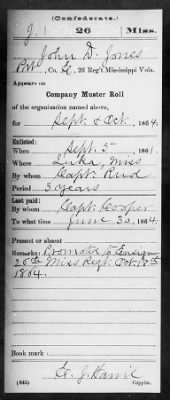 (Confederate.)
J. 26 Miss.
John D. Jones
Pvt, Co. , 26 Reg't Mississippi Vols.
Appears on
Company Muster Roll
of the organization named above,
for Sept & Oct, 1864.
Enlisted:
When Sept. 5, 1861.
Where Iuka, Miss
By whom Capt.
Period 3 years
Last paid:
By whom Capt. Cooper
To what time June 30, 1864.
Present or absent
Remarks: Promoted to Ensign
26th Miss Regt. Oct. 12th
1864.
Book mark:
(642) Copyist.